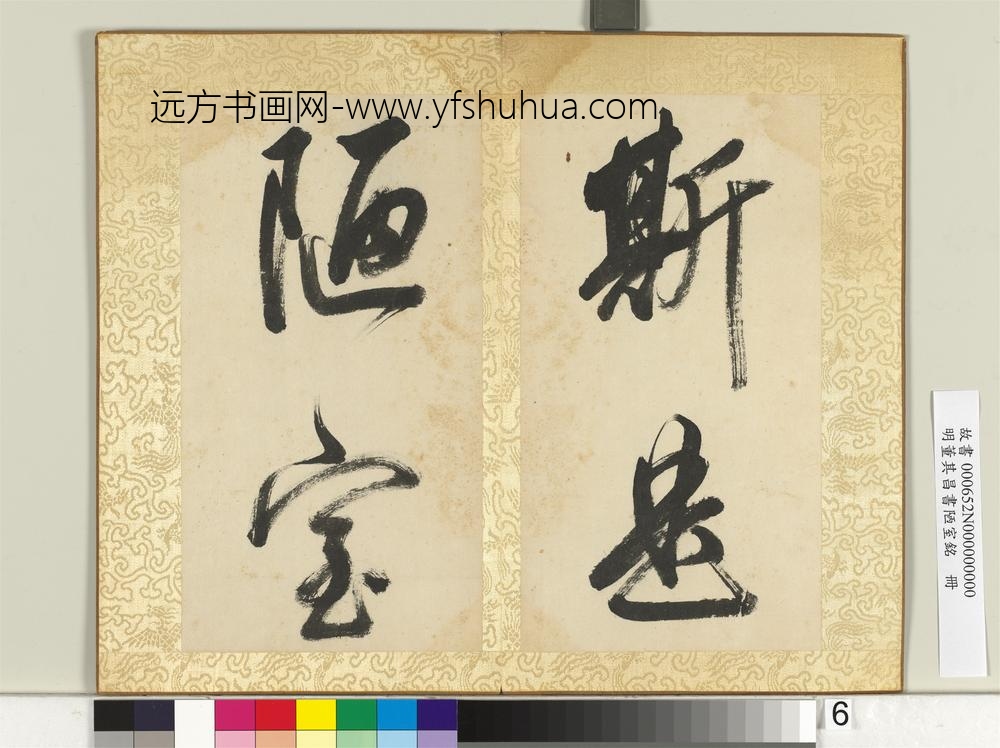 远方书画网-www.yfshuhua.com
斯是
陋室
故書 000652N000000000
明董其昌書陋室銘 冊
6